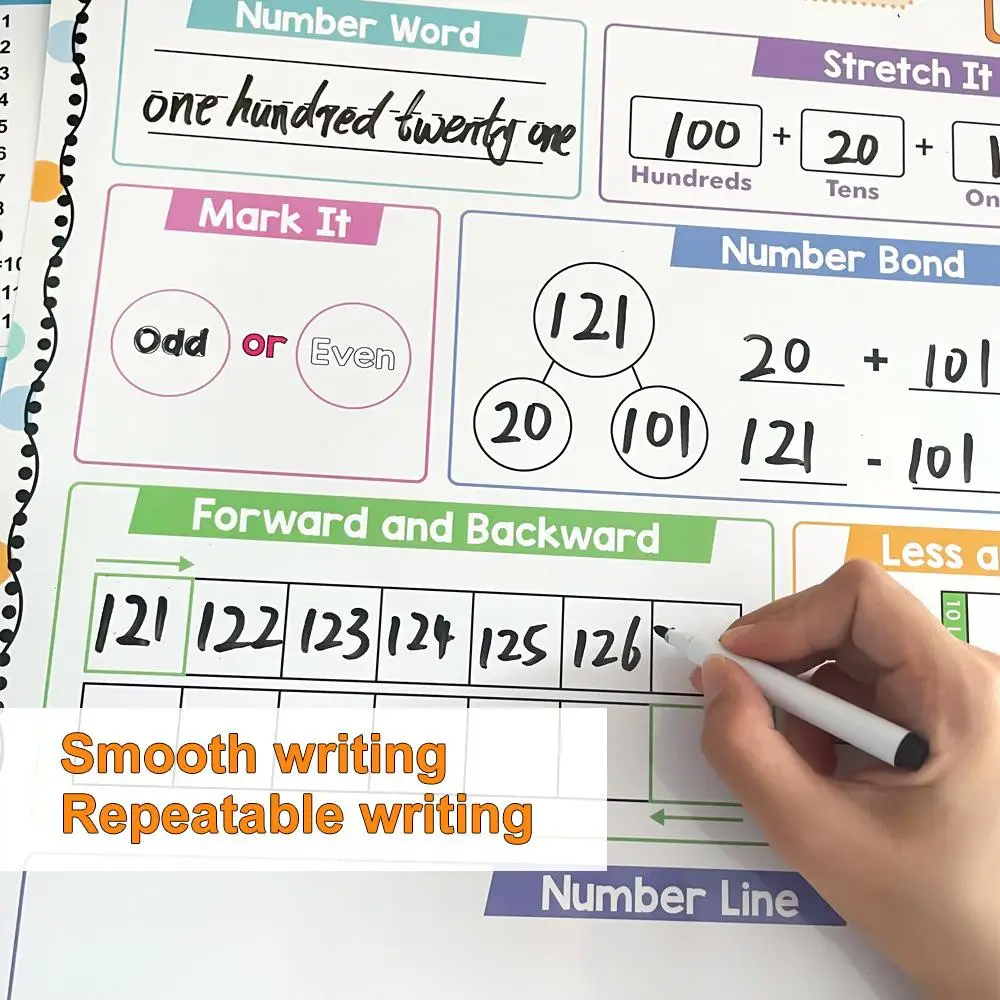 Number Word
one hundred twenty one
Stretch It
100 + 20 +
Hundreds
Tens
Mark It
Odd or Even
Number Bond
121
20 101
20 + 101
121 - 101
Forward and Backward
121 122 123 124 125 126
Less a
101
Smooth writing
Repeatable writing
Number Line